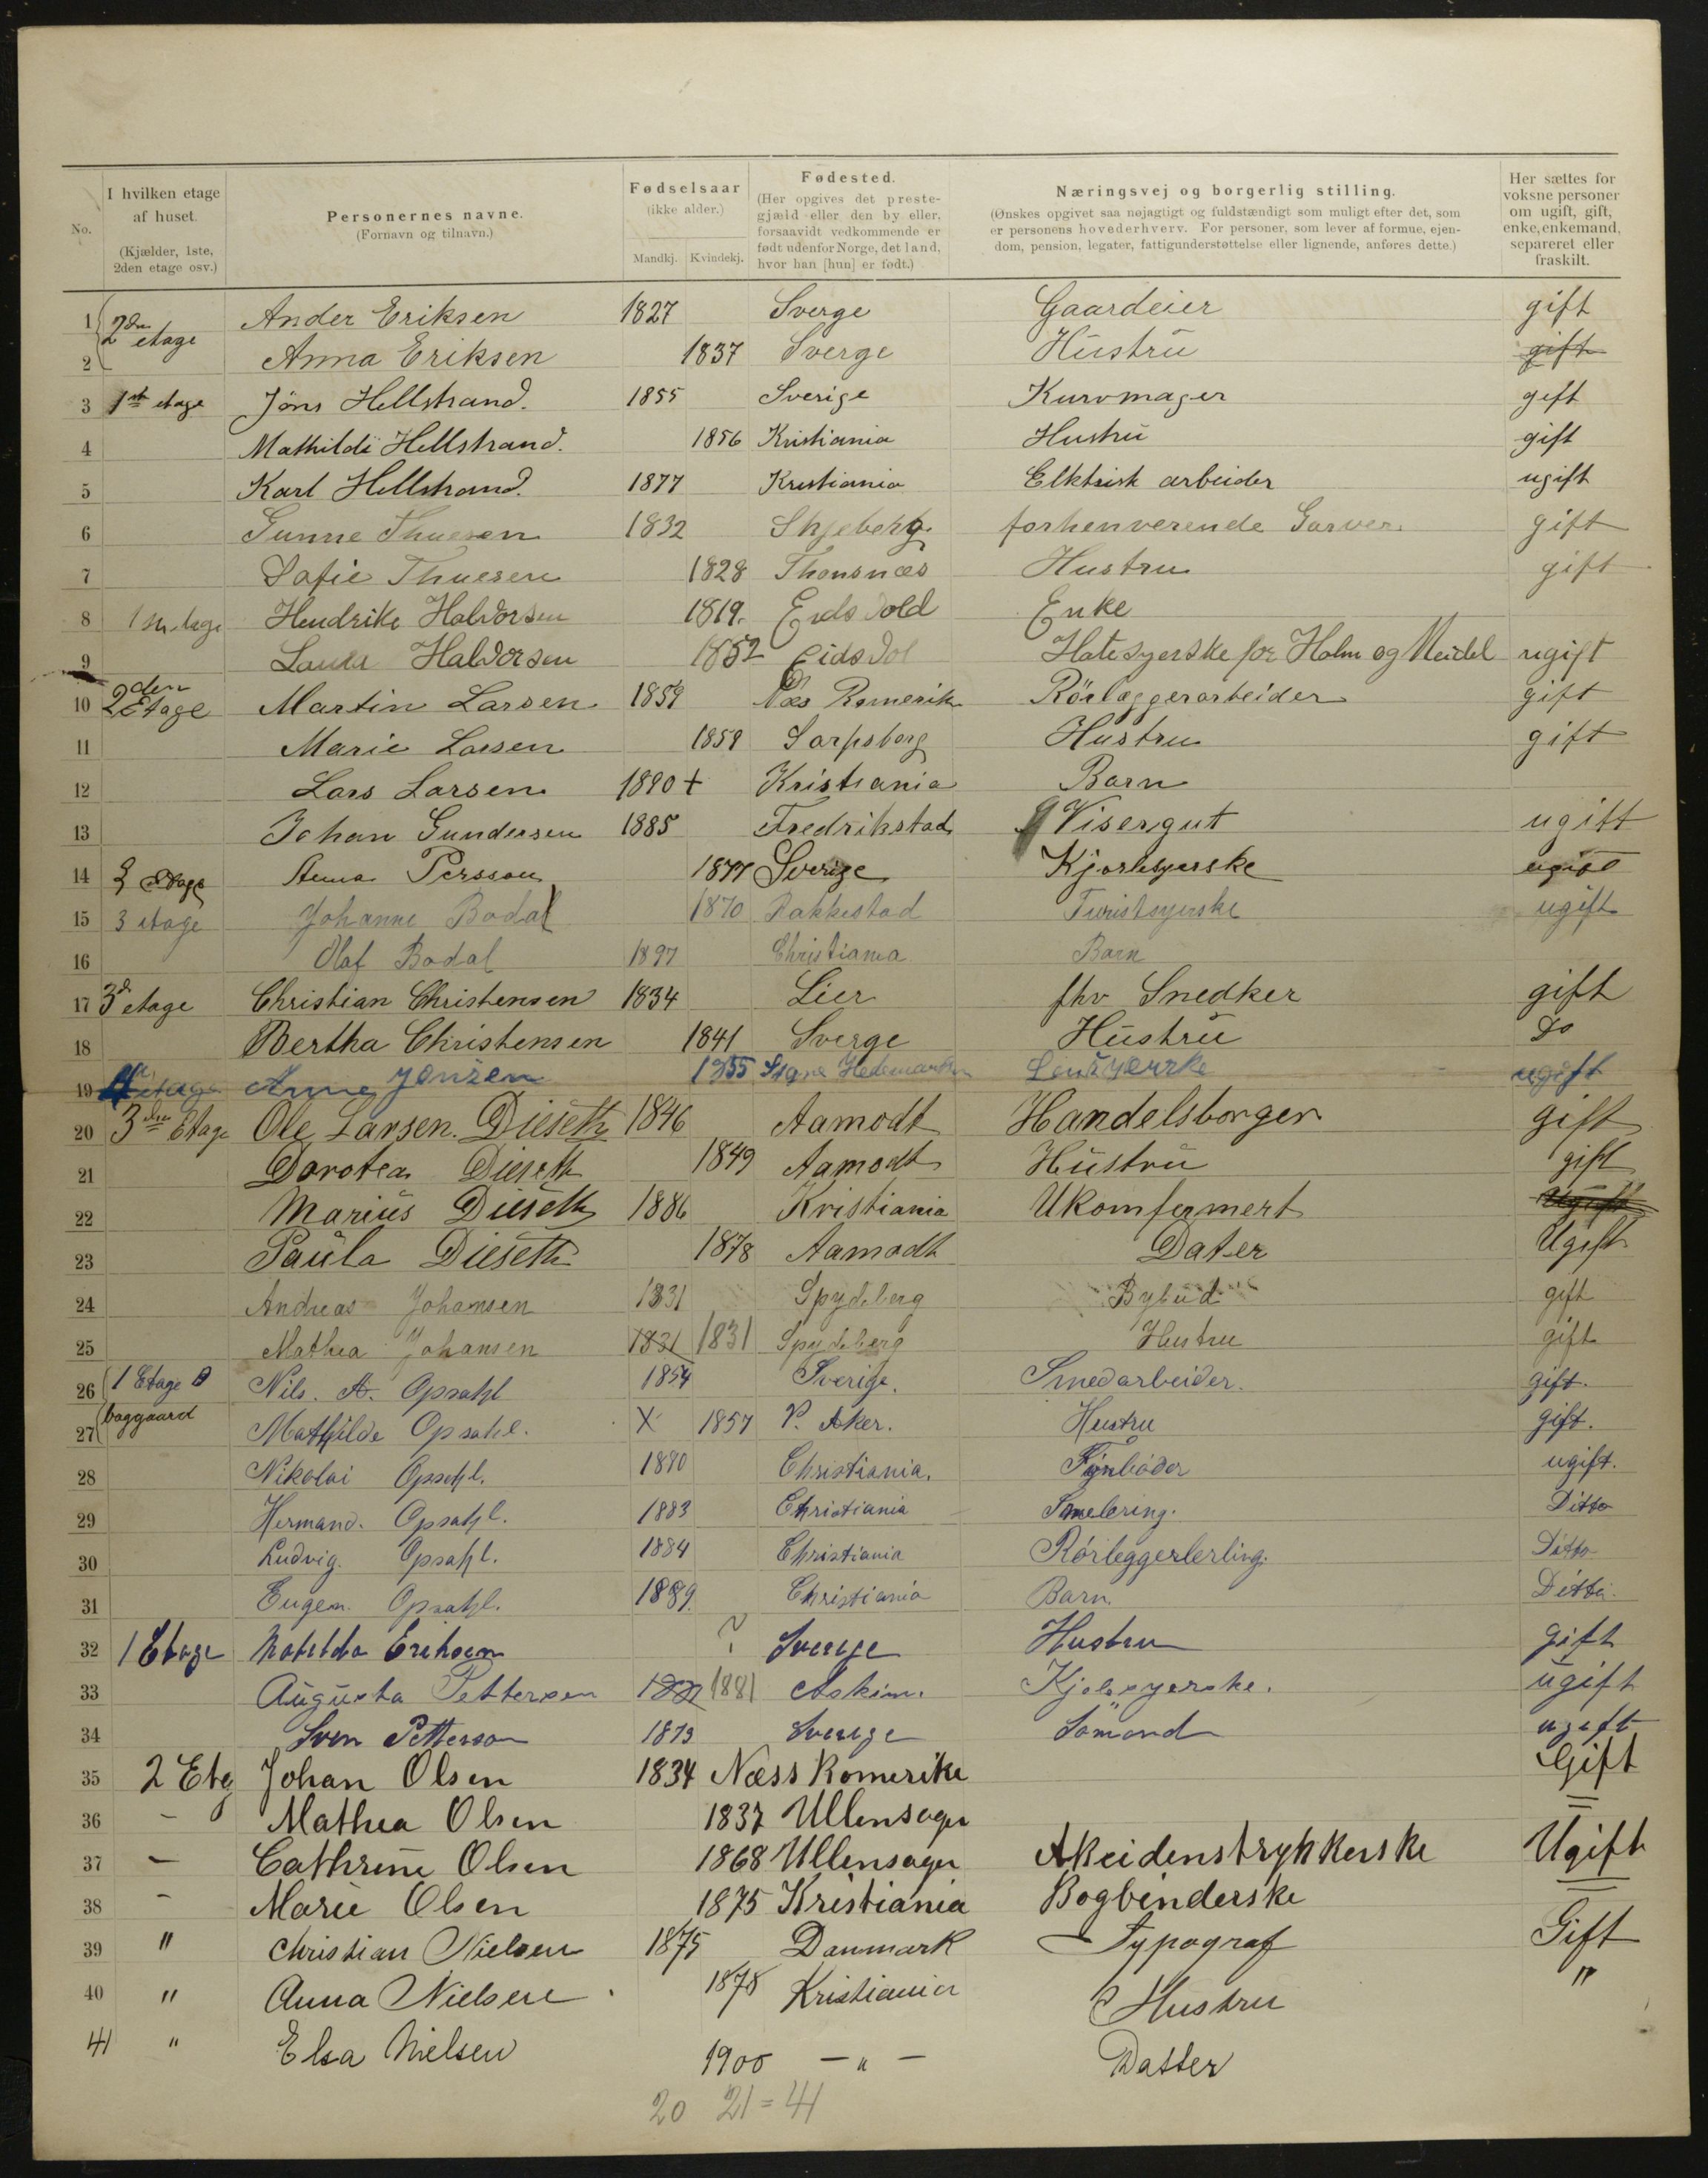 No.
I hvilken etage af huset. (Kjælder, 1ste, 2den etage osv.)
Personernes navne. (Fornavn og tilnavn.)
Fødselsaar (ikke alder.) Mandkj. Kvindekj.
Fødested. (Her opgives det prestegjæld eller den by eller, forsaavidt vedkommende er født udenfor Norge, det land, hvor han [hun] er født.)
Næringsvej og borgerlig stilling. (Ønskes opgivet saa nøjagtigt og fuldstændigt som muligt efter det, som er personens hovederhverv. For personer, som lever af formue, ejendom, pension, legater, fattigunderstøttelse eller lignende, anføres dette.)
Her sættes for voksne personer om ugift, gift, enke, enkemand, separeret eller fraskilt.
1 2den etage Ander Eriksen 1827 Sverge Gaardeier gift
2 Anna Eriksen 1837 Sverge Hustru gift
3 1st etage Jöns Hellstrand. 1855 Sverige Kurvmager gift
4 Mathilde Hellstrand. 1856 Kristiania Hustru gift
5 Karl Hellstrand. 1877 Kristiania Elktrisk arbeider ugift
6 Gunne Thuesen 1832 Skjeberg. forhenverende Garver gift
7 Sofie Thuesen 1828 Thonsnæs Hustru gift
8 Hendrike Halvorsen 1819. Eidsvold Enke
9 Laura Halvorsen 1852 Eidsvol Hatesyerske for Holm og Meidel ugift
10 2den Etage Martin Larsen 1859 Næs Romerik Rörlæggerarbeider gift
11 Marie Larsen 1859 Sarpsborg Hustru gift
12 Lars Larsen 1890 + Kristiania Barn
13 Johan Gundersen 1885 Fredrikstad Visergut ugift
14 3 Etage Anna Persson 1877 Sverige Kjorlesyerske ugift
15 3 etage Johanne Bodal 1870 Rakkestad Turistsyerske ugift
16 Olaf Bodal 1897 Christiania Barn
17 3d etage Christian Christensen 1834 Lier fhv Snedker gift
18 Bertha Christensen 1841 Sverge Hustru Do
19 etage Anne Jensen 1855 Hedemarken ugift
20 3den Etage Ole Larsen. Dieseth 1846 Aamodt Handelsborger gift
21 Dorotea Dieseth 1849 Aamodt Hustru gift
22 Marius Dieseth 1886 Kristiania Ukomfermert Ugift
23 Paula Dieseth 1878 Aamodt Dater Ugift
24 Andreas Johansen 1831 Spydeberg Bybud gift
25 Mathea Johansen 1831 1831 Spydeberg Hustru gift
26 1 Etage B Nils. A. Opsahl 1854 Sverige. Smedarbeider. gift.
27 baggaard Mathilde Opsahl. X 1857 V. Aker. Hustru gift.
28 Nikolai Opsahl. 1880 Christiania. ugift.
29 Hermand. Opsahl. 1883 Christiania Smelering. Ditto
30 Ludvig. Opsahl. 1884 Christiania Rörleggerlerling. Ditto
31 Eugen. Opsahl. 1889. Christiania Barn. Ditto.
32 1 Etage Matelda Eriksen ? Sverige Hustru gift
33 Augusta Pettersen 1881 1881 Askim. Kjolesyerske. ugift
34 Sven Petterson 1873 Sverige Sömand ugift
35 2 Etg Johan Olsen 1834 Næss Romerike Gift
36 – Mathea Olsen 1837 Ullensager =
37 – Cathrine Olsen 1868 Ullensager Akeidenstrykkerske Ugift
38 – Marie Olsen 1875 Kristiania Bogbinderske =
39 " Christian Nielsen 1875 Danmark Typograf Gift
40 " Anna Nielsen 1878 Kristiania Hustru "
41 " Elsa Nielsen 1900 – " – Datter
20 21 = 41